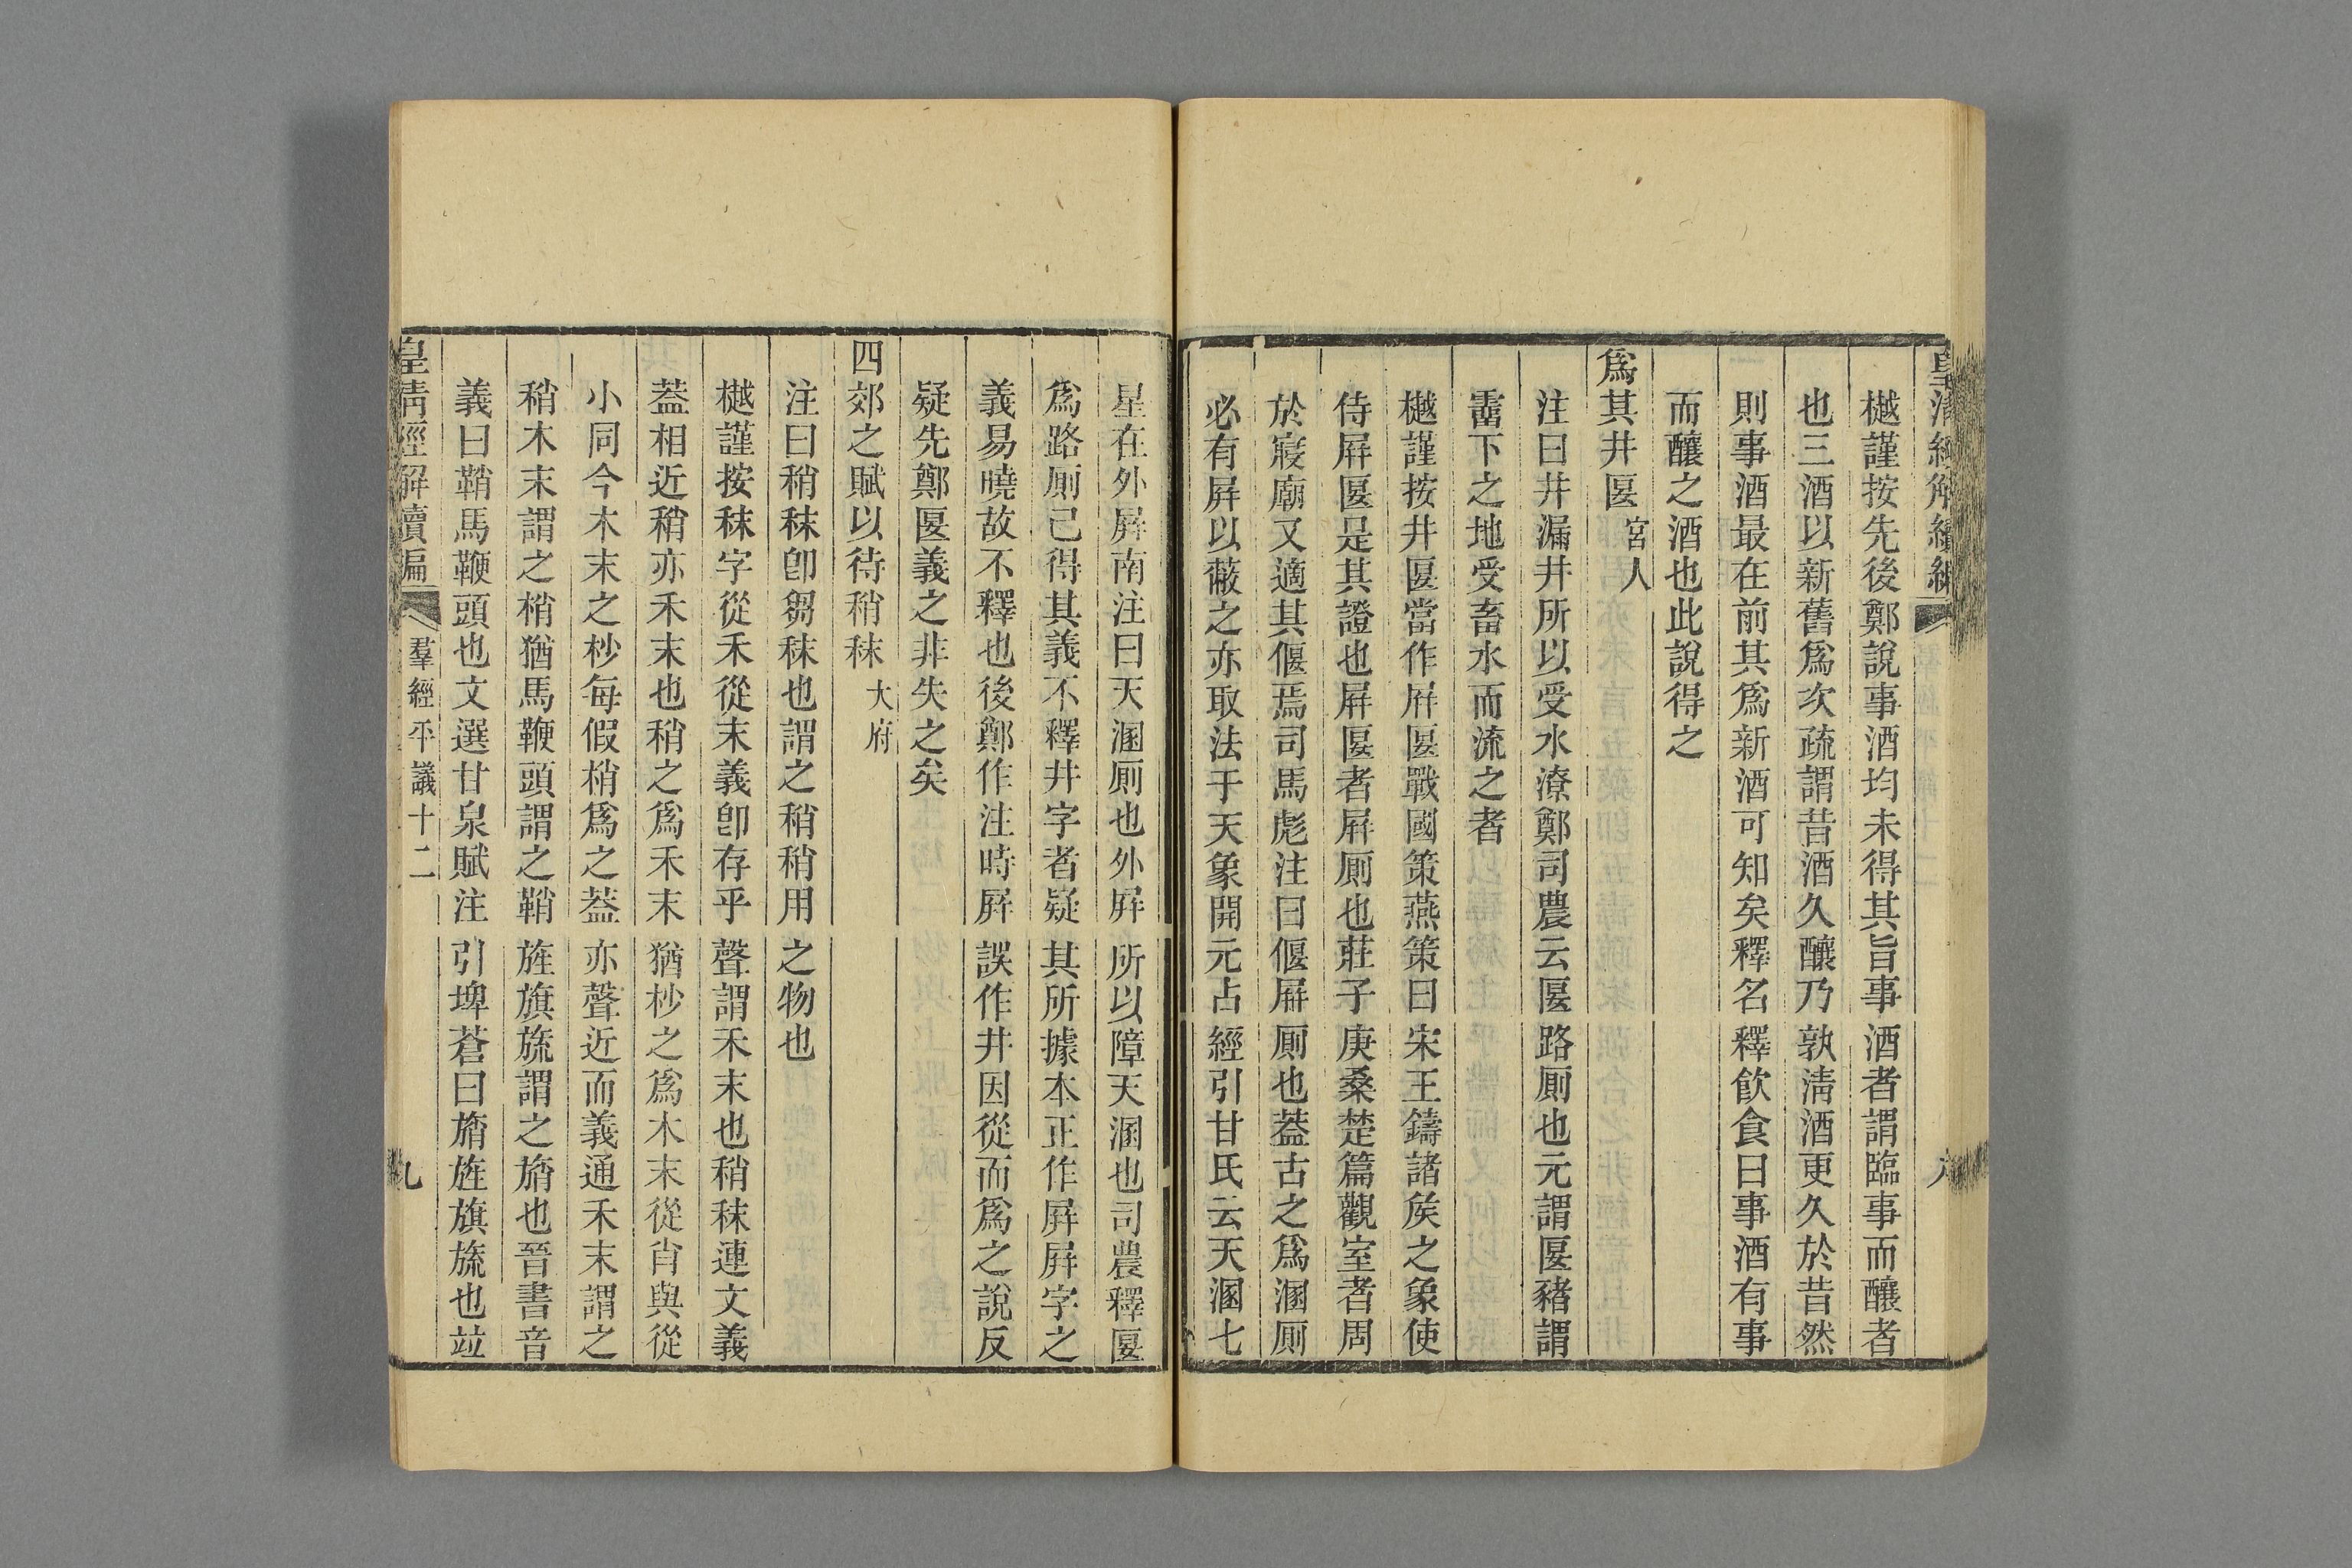 皇清經解續編
樾謹按先後鄭說事酒均未得其旨事酒者謂臨事而釀者
也三酒以新舊爲次疏謂昔酒久釀乃孰淸酒更久於昔然
則事酒最在前其爲新酒可知矣釋名釋飮食曰事酒有事
而釀之酒也此說得之
爲其井匽宮人
注曰井漏井所以受水潦鄭司農云匽路厠也元謂匽豬謂
霤下之地受畜水而流之者
樾謹按井匽當作屛匽戰國策燕策曰宋王鑄諸矦之象使
侍屛匽是其證也屛匽者屛厠也莊子庚桑楚篇觀室者周
於寢廟又適其偃焉司馬彪注曰偃屛厠也葢古之爲溷厠
必有屛以蔽之亦取法于天象開元占經引甘氏云天溷七
星在外屛南注曰天溷厠也外屛所以障天溷也司農釋匽
爲路厠已得其義不釋井字者疑其所據本正作屛屛字之
義易曉故不釋也後鄭作注時屛誤作井因從而爲之說反
疑先鄭匽義之非失之矣
四郊之賦以待稍秣大府
注曰稍秣卽芻秣也謂之稍稍用之物也
樾謹按秣字從禾從末義卽存乎聲謂禾末也稍秣連文義
葢相近稍亦禾末也稍之爲禾末猶杪之爲木末從肖與從
小同今木末之杪每假梢爲之葢亦聲近而義通禾末謂之
稍木末謂之梢猶馬鞭頭謂之鞘旌旗旒謂之旓也晉書音
義曰鞘馬鞭頭也文選甘泉賦注引埤蒼曰旓旌旗旒也竝
皇清經解續編
羣經平議十二
九